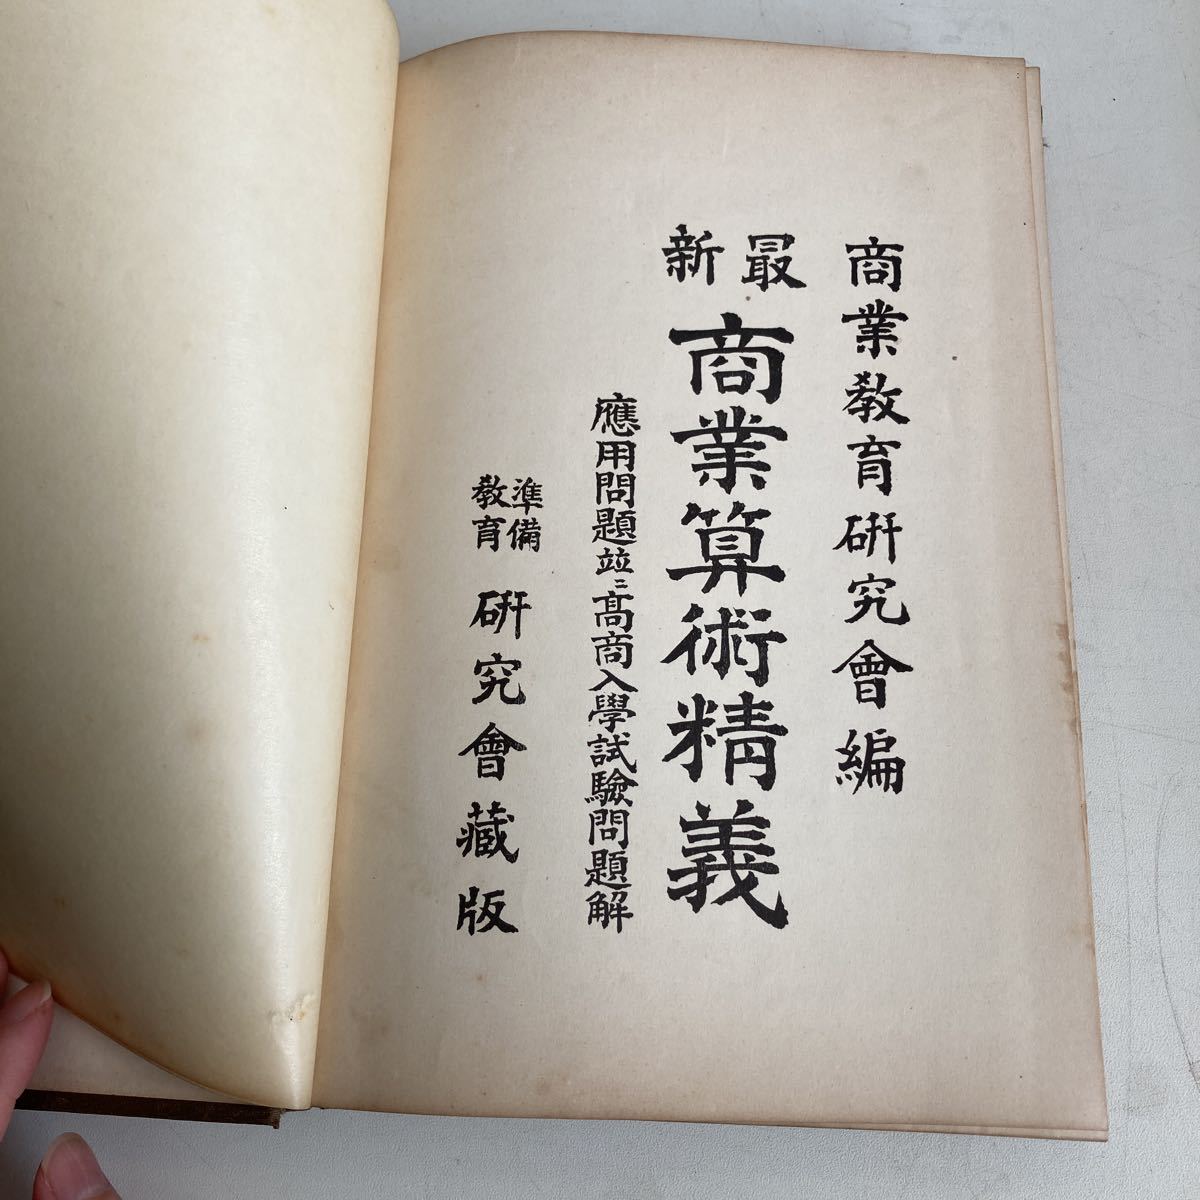 商業教育研究會編
最新
商業算術精義
應用問題並ニ高商入學試驗問題解
準備教育
研究會藏版